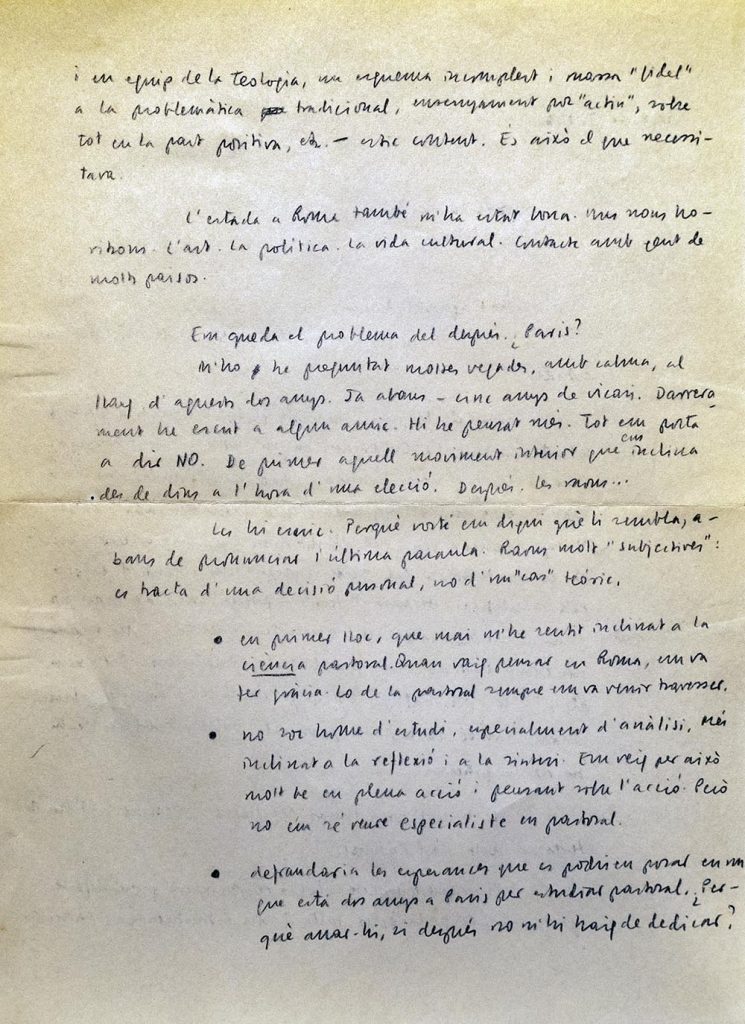 i en equip de la Teologia, un esquema incomplert i massa "fidel"
a la problemàtica tradicional, ensenyament poc "actiu", sobre
tot en la part positiva, etc. — estic content. És això el que necessi-
tava.
L'estada a Roma també m'ha estat bona. Uns nous ho-
ritzons. L'art. La política. La vida cultural. Contacte amb gent de
molts països.
Em queda el problema del després. ¿París?
M'ho he preguntat moltes vegades, amb calma, al
llarg d'aquests dos anys. Ja abans – cinc anys de vicari. Darrera-
ment he escrit a algun amic. Hi he pensat més. Tot em porta
a dir NO. De primer aquell moviment interior que ens inclina
des de dins a l'hora d'una elecció. Després. les raons...
Les hi escric. Perquè vostè em digui què li sembla, a-
bans de pronunciar l'última paraula. Raons molt "subjectives":
es tracta d'una decisió personal, no d'un "cas" teòric.
• en primer lloc, que mai m'he sentit inclinat a la
ciència pastoral. Quan vaig pensar en Roma, em va
fer gràcia. Lo de la pastoral sempre em va venir travesser.
• no soc home d'estudi, especialment d'anàlisi. Més
inclinat a la reflexió i a la síntesi. Em veig per això
molt be en plena acció i pensant sobre l'acció. Però
no em sé veure especialiste en pastoral.
• defraudaria les esperances que es podrien posar en un
que està dos anys a París per estudiar pastoral. ¿Per-
què anar-hi, si després no m'hi haig de dedicar?